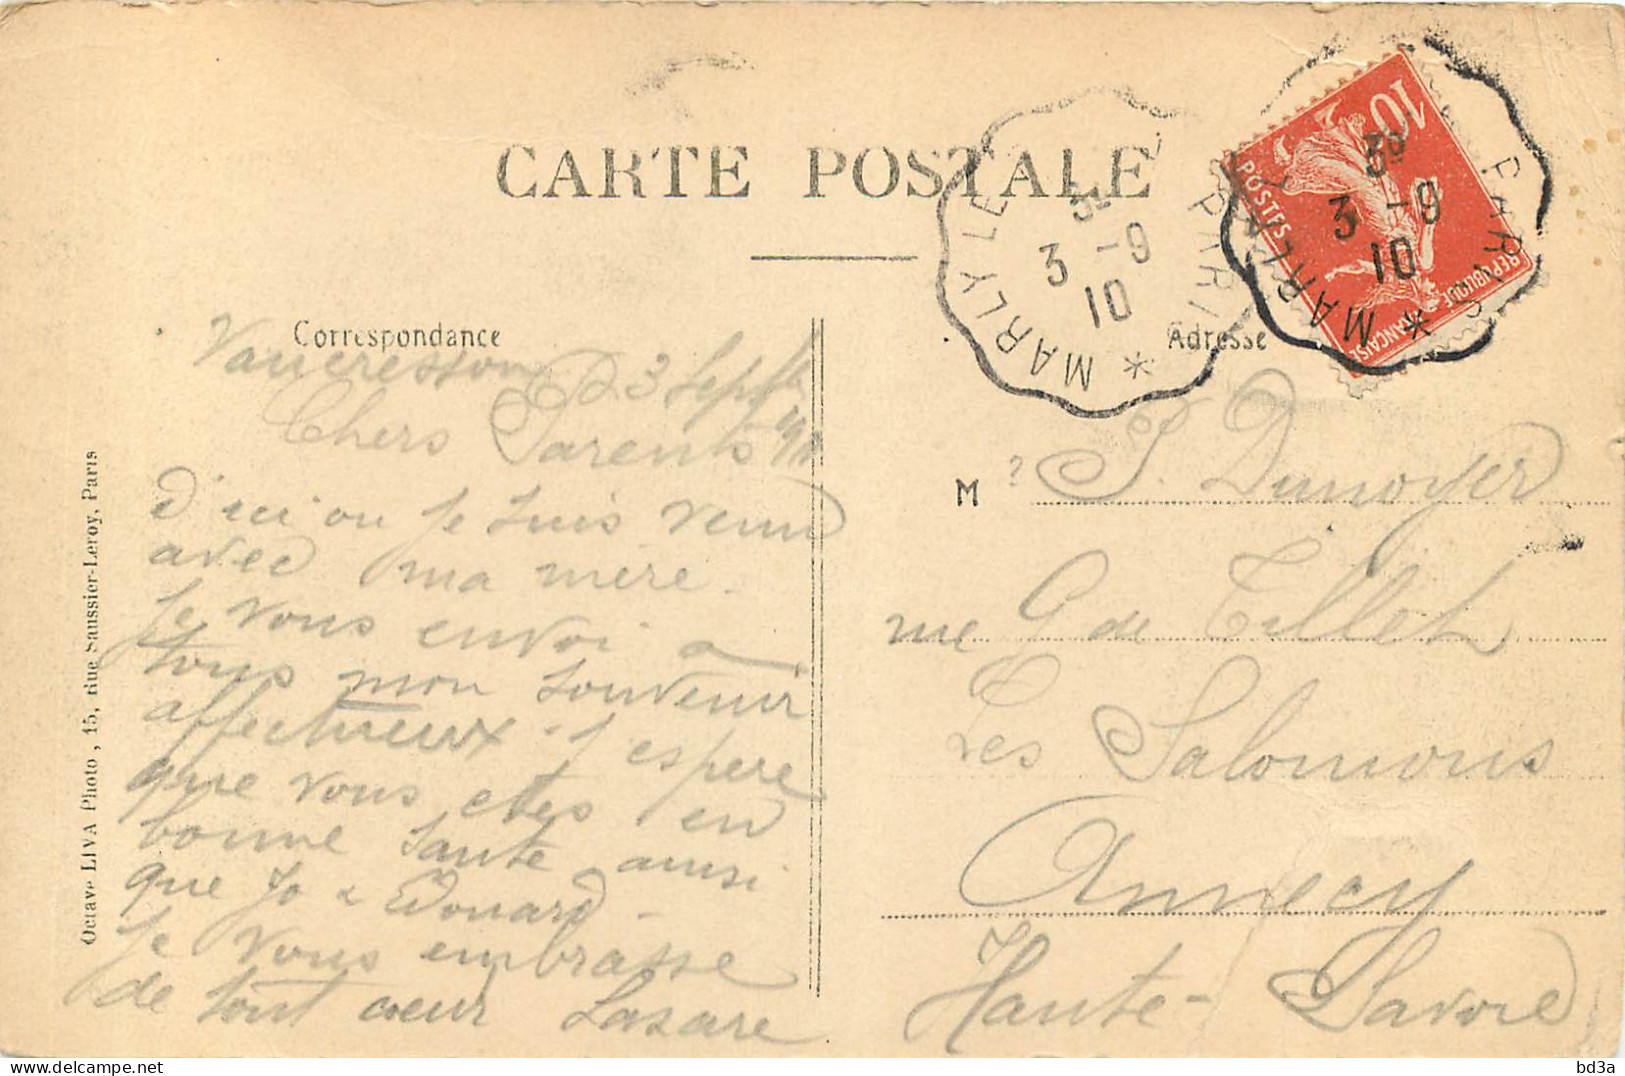 CARTE POSTALE
MARLY LE
PARIS
3 -9
10
MARLY LE
PARIS
3 -9
10
10
POSTES
REPUBLIQUE FRANÇAISE
Correspondance
Adresse
Vaucresson 23 Septbre
Chers Parents
d'ici ou je suis venu
avec ma mère.
Je vous envoi a
tous mon souvenir
affectueux - J'espere
que vous etes en
bonne sante ainsi
que Jo & Edouard -
Je vous embrasse
de tout cœur Lazare
M
Dunoyer
rue G de Tillet
Les Salomons
Annecy
Haute-Savoie
Octave LIVA Photo, 15, Rue Saussier-Leroy, Paris
DELCAMPE
bd3a